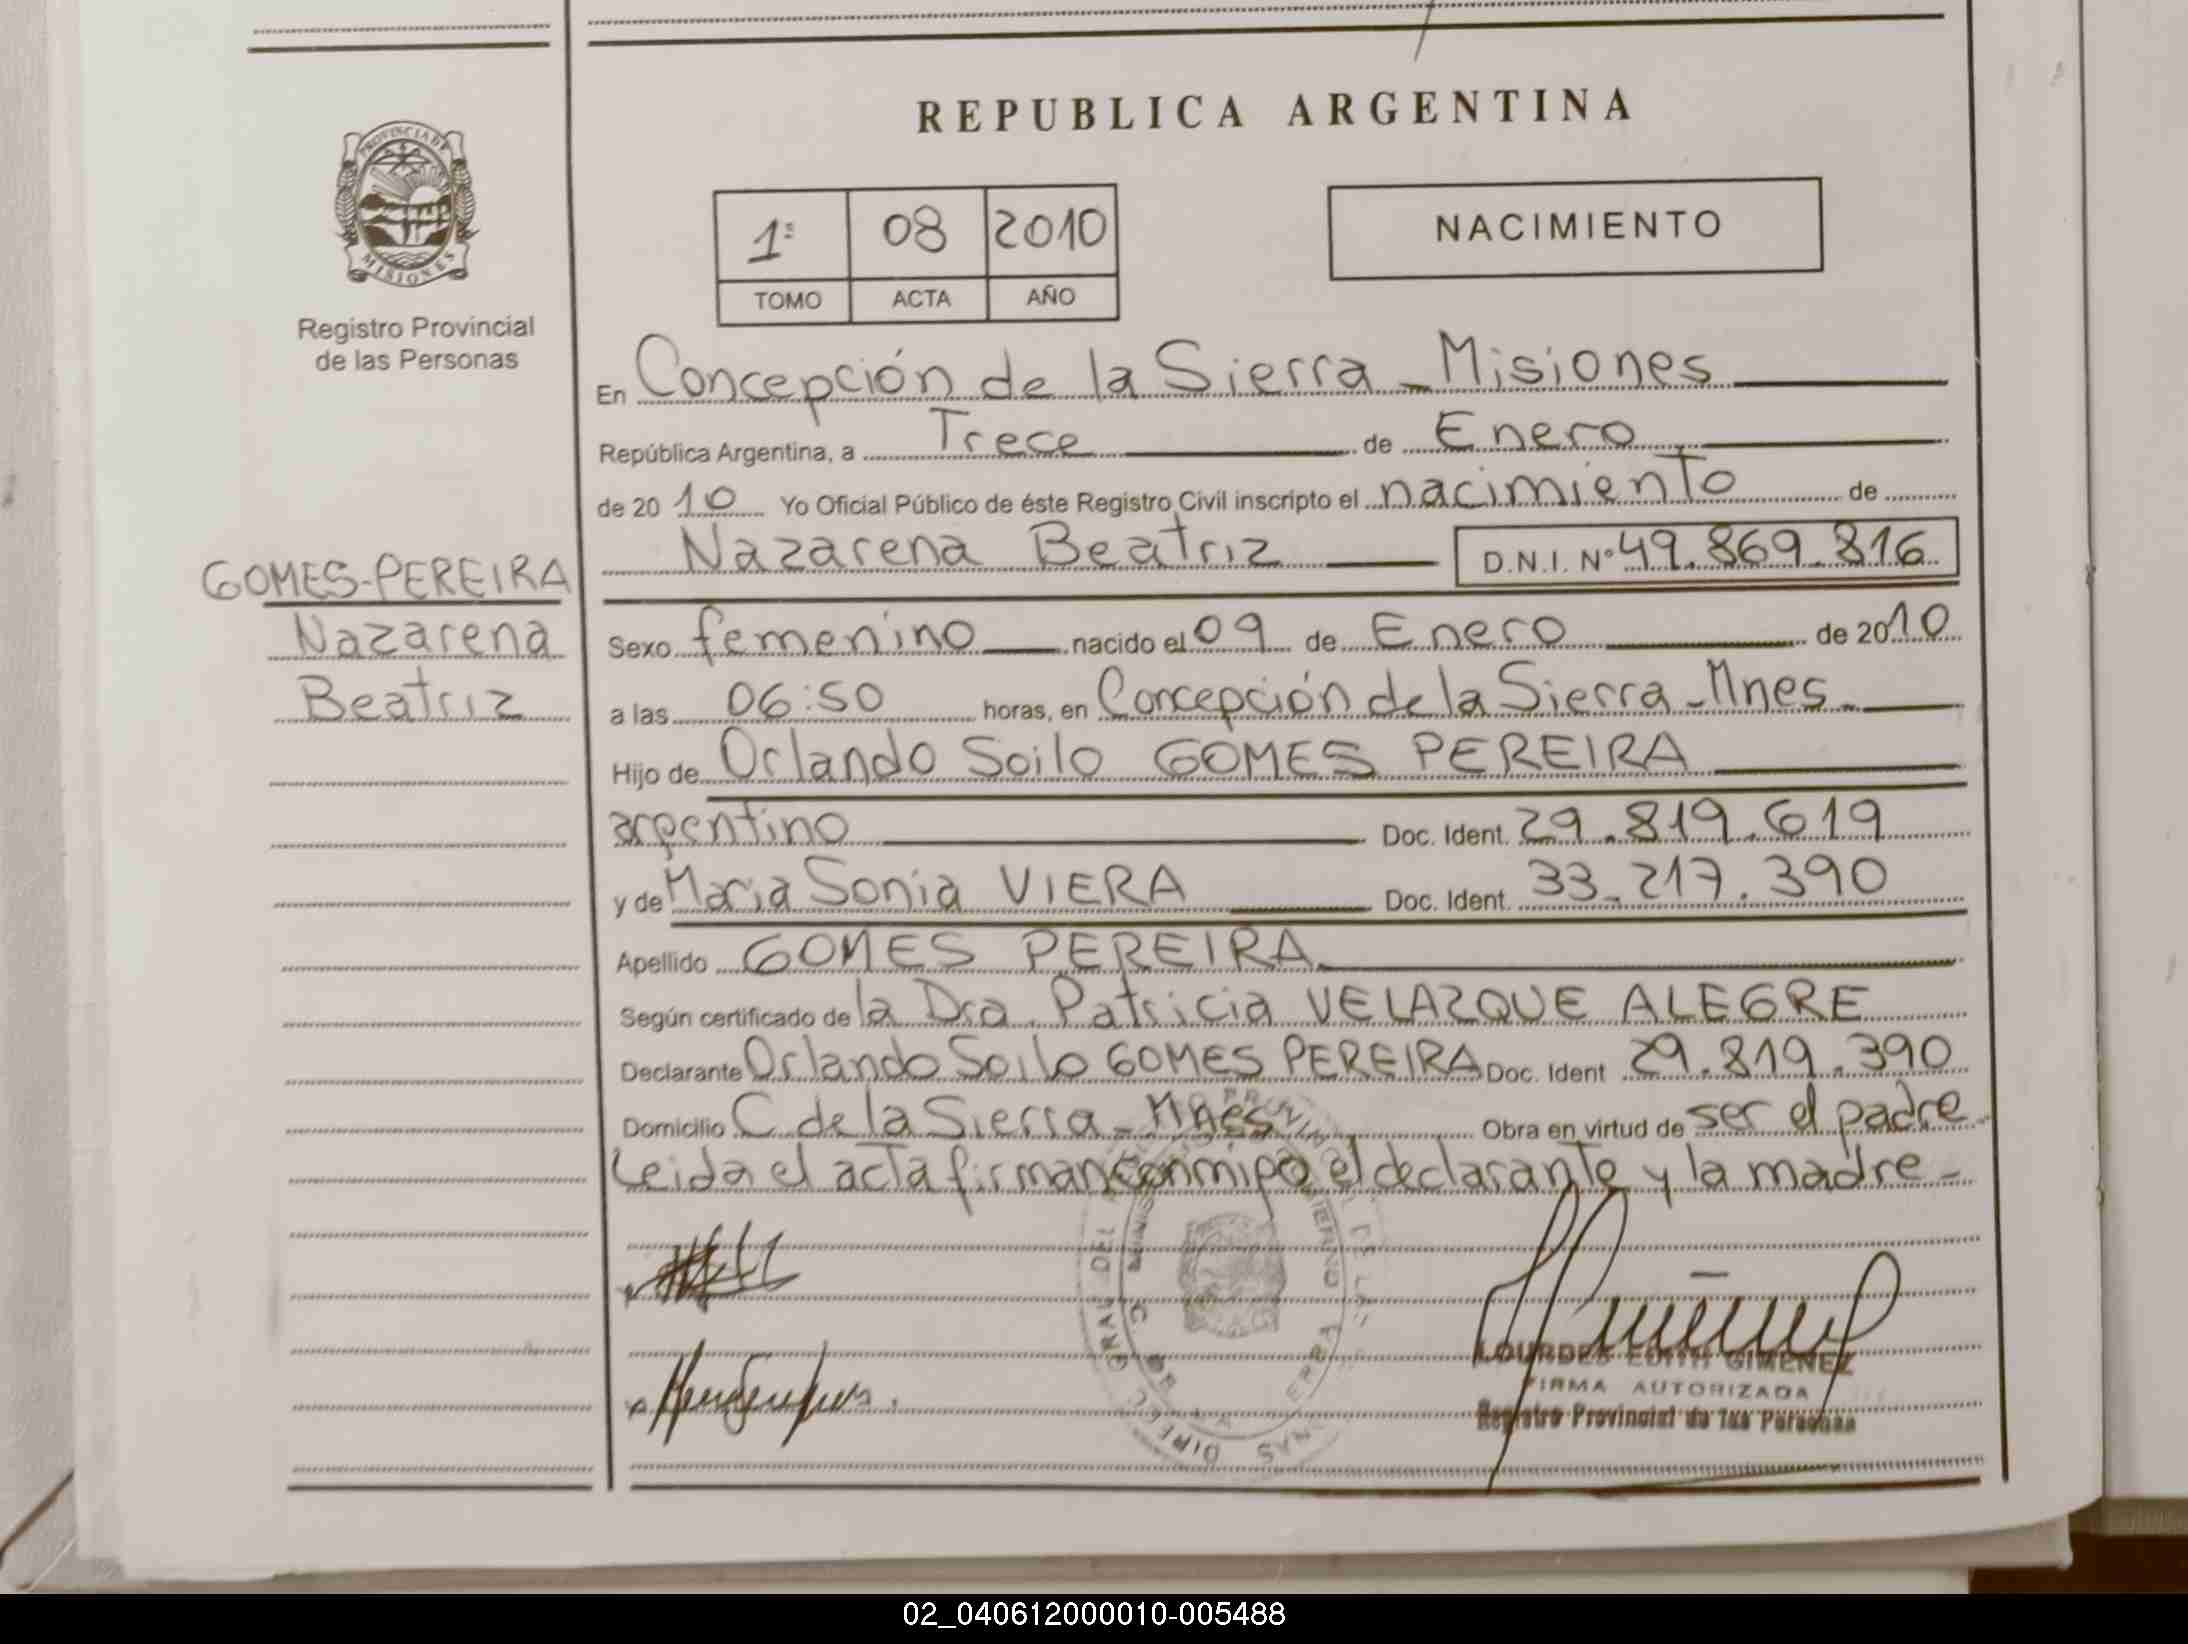 REPUBLICA ARGENTINA
PROVINCIA DE
MISIONES
Registro Provincial
de las Personas
1º 08 2010
TOMO ACTA AÑO
NACIMIENTO
En Concepción de la Sierra - Misiones
República Argentina, a Trece de Enero
de 2010 Yo Oficial Público de éste Registro Civil inscripto el nacimiento de
Nazarena Beatriz D.N.I. Nº 49.869.816
GOMES-PEREIRA
Nazarena
Beatriz
Sexo femenino nacido el 09 de Enero de 2010
a las 06:50 horas, en Concepción de la Sierra - Mnes.
Hijo de Orlando Soilo GOMES PEREIRA
argentino Doc. Ident. 29.819.619
y de Maria Sonia VIERA Doc. Ident. 33.217.390
Apellido GOMES PEREIRA
Según certificado de la Dra. Patricia VELAZQUE ALEGRE
Declarante Orlando Soilo GOMES PEREIRA Doc. Ident 29.819.390
Domicilio C. de la Sierra - Mnes Obra en virtud de ser el padre
Leida el acta firman conmigo el declarante y la madre -
LOURDES EDITH GIMENEZ
FIRMA AUTORIZADA
Registro Provincial de las Personas
02_040612000010-005488